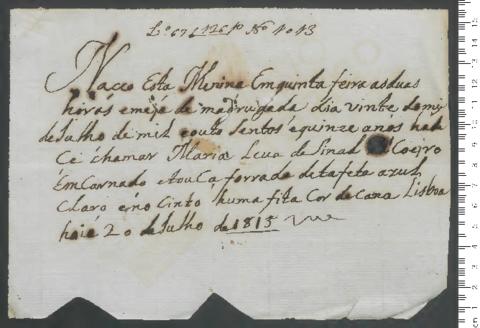 Lº 67 f 126 Nº 1013
Naceo Esta Menina Emquinta feira as duas
horas e meje de madrugada Dia vinte do mes
de Julho de mil eouto sentos equinze anos hade
Ce chamar Maria Leva de Sinal Coeiro
EmCarnado eTouCa forrada de tafeta azul
Claro eno Cinto huma fita Cor de Cana Lisboa
hoie 20 de Julho de 1815